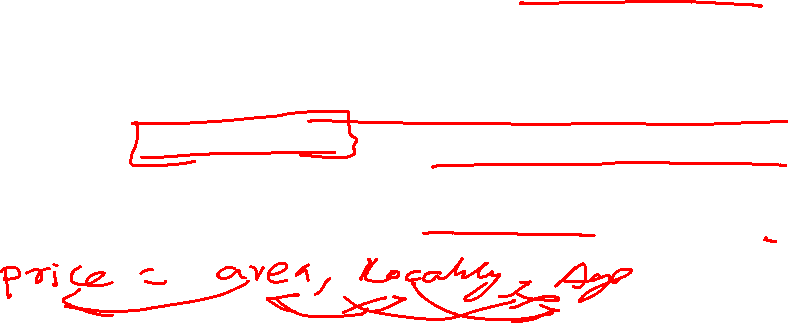 price = area, Locality, Age